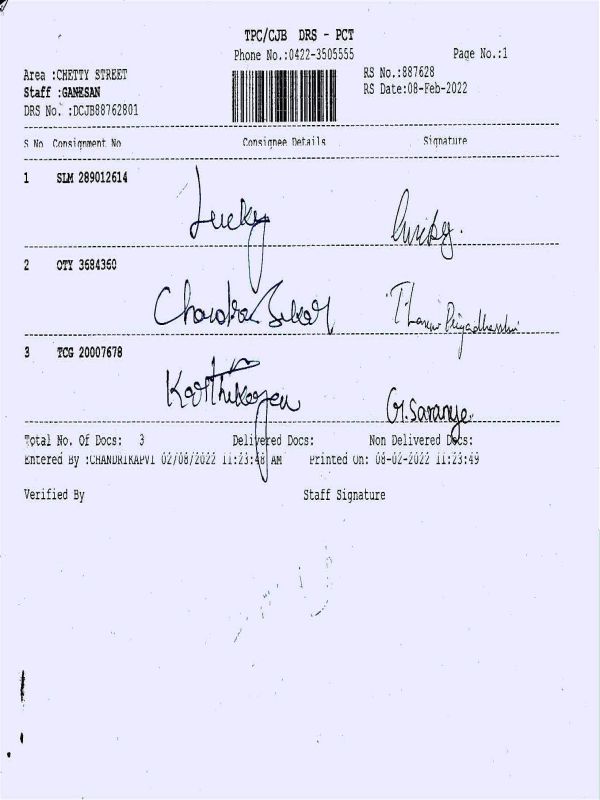 TPC/CJB DRS - PCT
Phone No.:0422-3505555 Page No.:1
Area :CHETTY STREET RS No.:887628
Staff :GANESAN RS Date:08-Feb-2022
DRS No. :DCJB88762801
S No Consignment No Consignee Details Signature
1 SLM 289012614 Lucky
2 OTY 3684360 Chandra Sekar
3 TCG 20007678 Karthikeyen G.Saranye
Total No. Of Docs: 3 Delivered Docs: Non Delivered Docs:
Entered By :CHANDRIKAPV1 02/08/2022 11:23:48 AM Printed On: 08-02-2022 11:23:49
Verified By Staff Signature